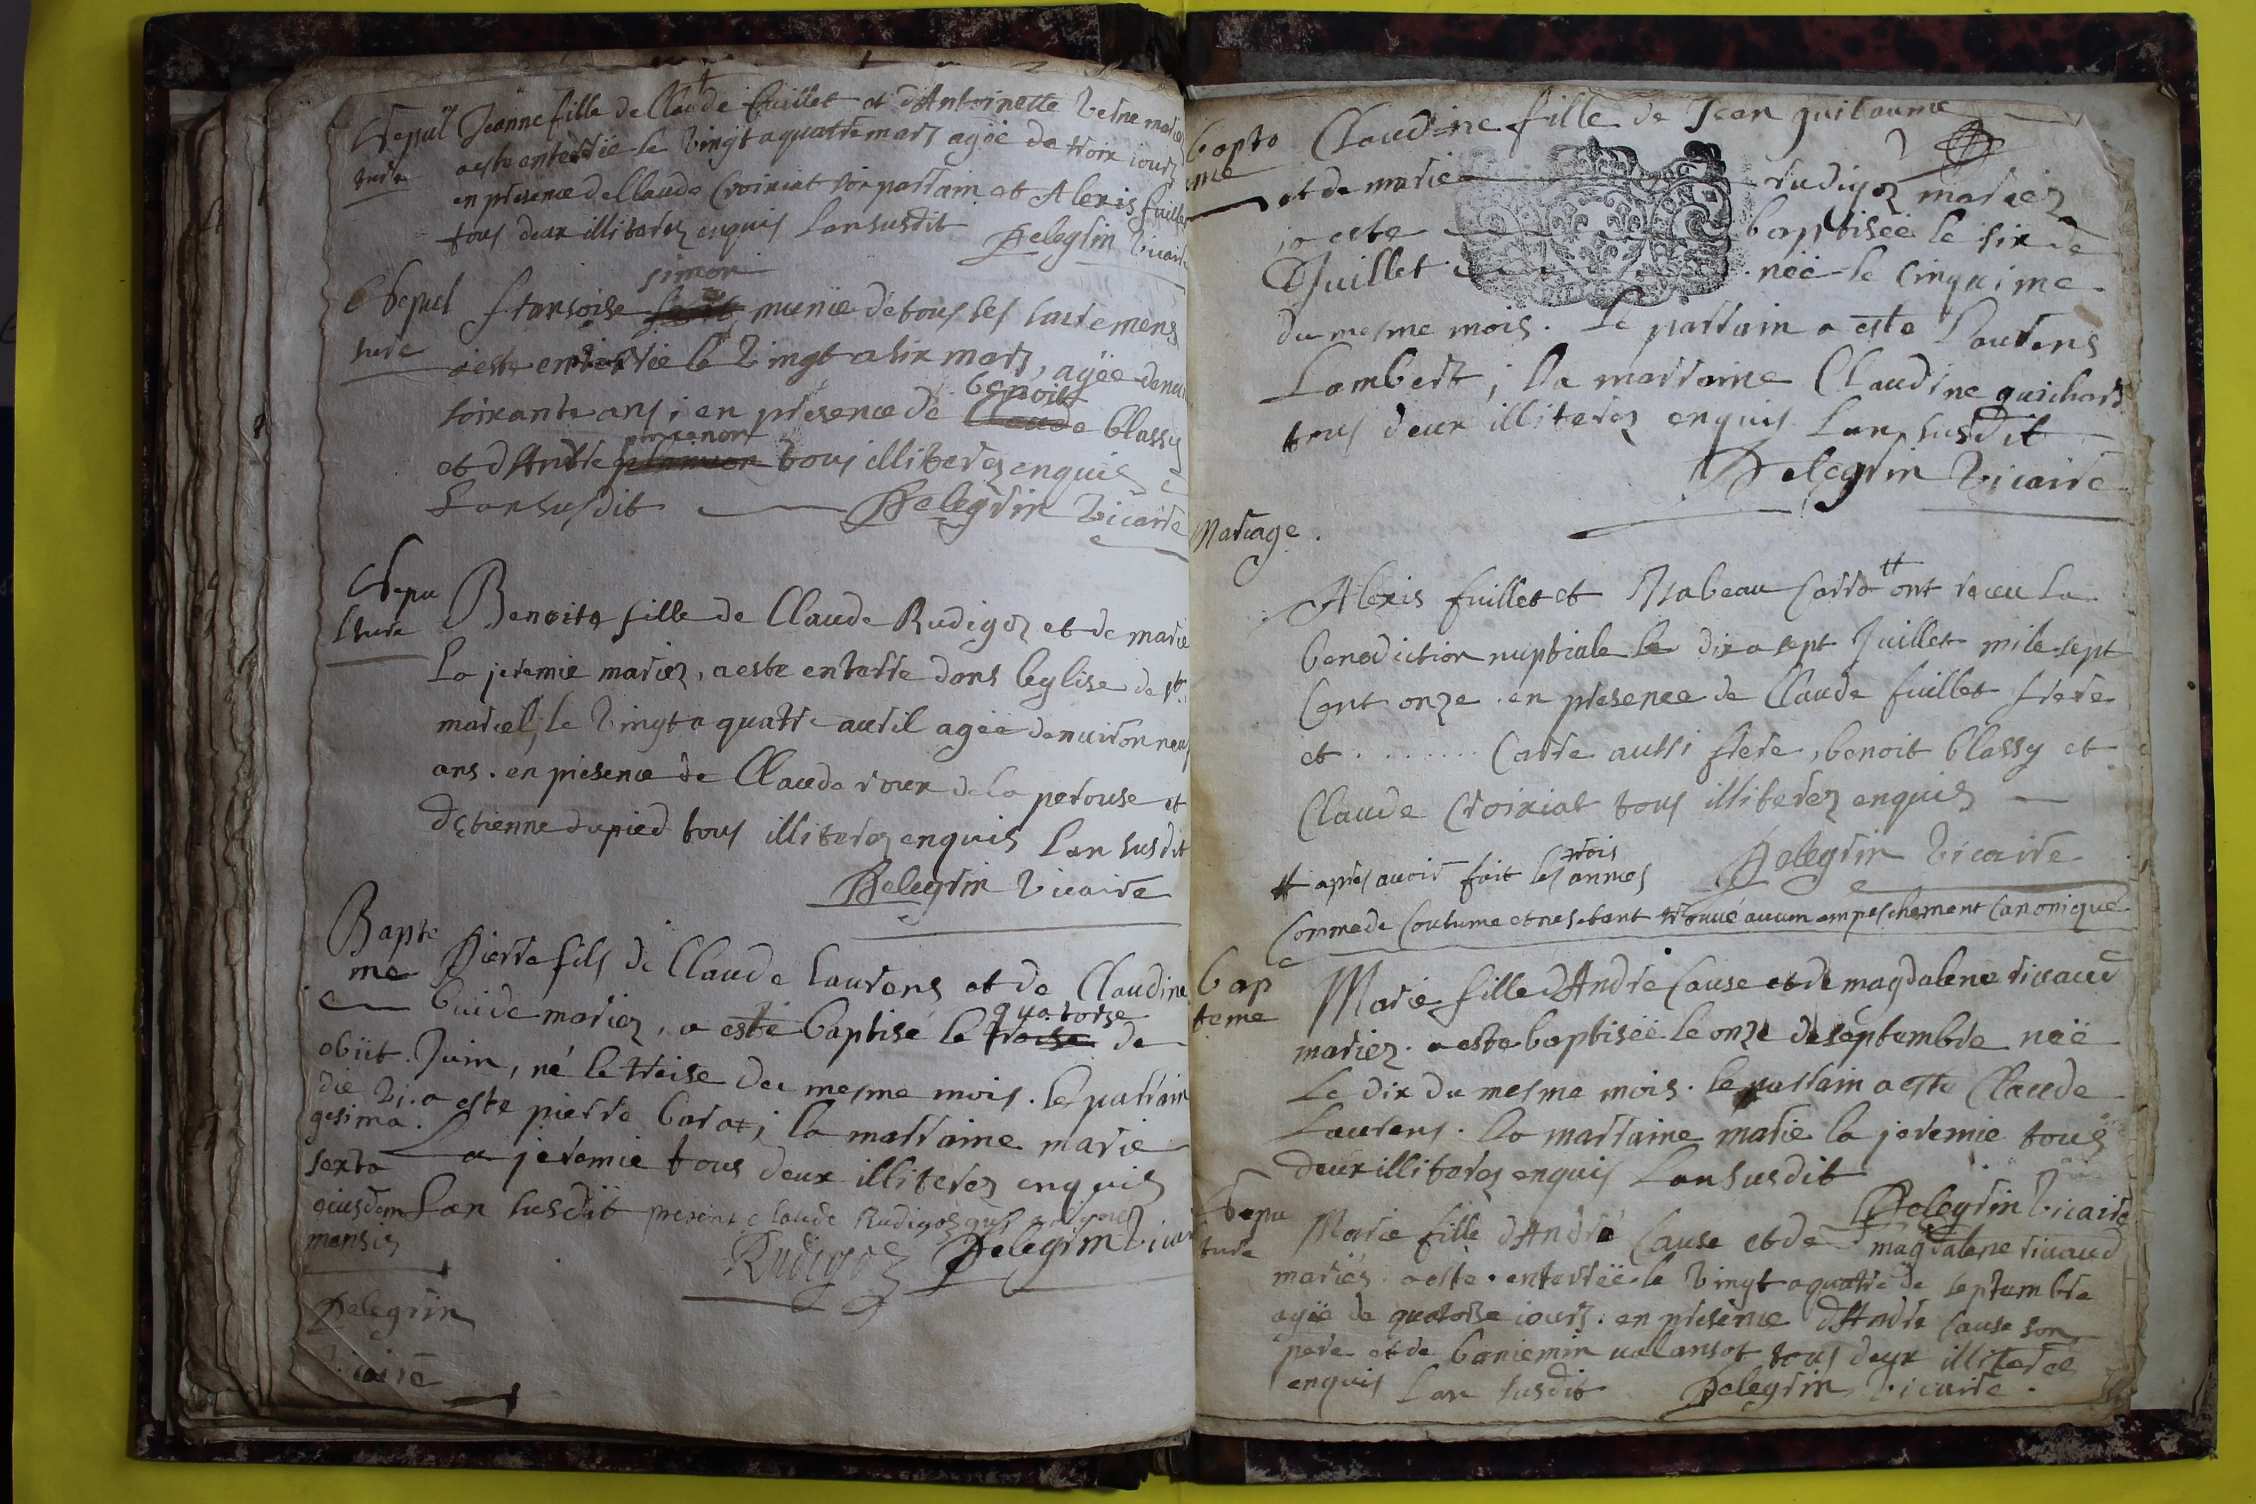 Sepul Jeanne fille de Claude fuillet et d'Antoinette Verne mariez
ture a esté enterrée le vingt a quatre mars agée de trois iours
en presence de Claude Croiziat son parrain et Alexis fuillet
tous deux illiterez enquis l'an susdit Pelegrin Vicaire
simon
Sepul fransoise munie de tous ses sacremens
ture a esté enterrée le vingt a six mars, agée denuiron
benoit
soixante ans, en presence de blassy
et d'Andre tous illiterez enquis
L'an susdit Pelegrin Vicaire
Sepu Benoite fille de Claude Rudigoz et de marie
lture la jeremie mariez, a esté enterrée dans leglise de st
marcel, le vingt a quatre auril agée denuiron neuf
ans. en presence de Claude roux de la perouse et
d'etienne dupied tous illiterez enquis l'an susdit
Pelegrin Vicaire
Bapte
me Pierre fils de Claude Laurens et de Claudine
quatorse
buide mariez, a esté baptisé le treise de
obiit Juin, né le treise du mesme mois. le parrain
die vi a esté pierre barat; la marraine marie
gesima la jeremie tous deux illiterez enquis
sexto
eiusdem L'an susdit present Claude Rudigoz
mensis Rudigoz Pelegrin Vicaire
Pelegrin
Vicaire
bapte Claudine fille de Jean guilaume
me et de marie rudigoz mariez
a esté baptisée le six de
Juillet née le cinquime
du mesme mois. Le parrain a esté Laurens
Lambert; la marraine Claudine guichard
tous deux illiterez enquis L'an susdit
Pelegrin Vicaire
Mariage.
Alexis fuillet et Isabeau Carra # ont receu la
benediction nuptiale le dix a sept Juillet mile sept
Cent onze. en presence de Claude fuillet frere
et ........ Carre aussi frere, benoit blassy et
Claude Croiziat tous illiterez enquis
Pelegrin Vicaire
trois
# apres auoir fait les annces
Comme de Coutume et ne s'etant trouué aucun empeschement Canonique
bap Marie fille d'Andre Cause et de magdalene riuaud
teme mariez. a esté baptisée le onze de septembre née
Le dix du mesme mois. le parrain a esté Claude
Laurens. la marraine marie la jeremie tous
deux illiterez enquis L'an susdit
Pelegrin Vicaire
Sepu Marie fille d'André Cause et de magdalene riuaud
ture mariés. a esté. enterrée le vingt a quatre de septembre
agée de quatorse iours. en presence d'Andre Cause son
pere et de beniemin ualansot tous deux illiteres
enquis L'an susdit Pelegrin Vicaire.